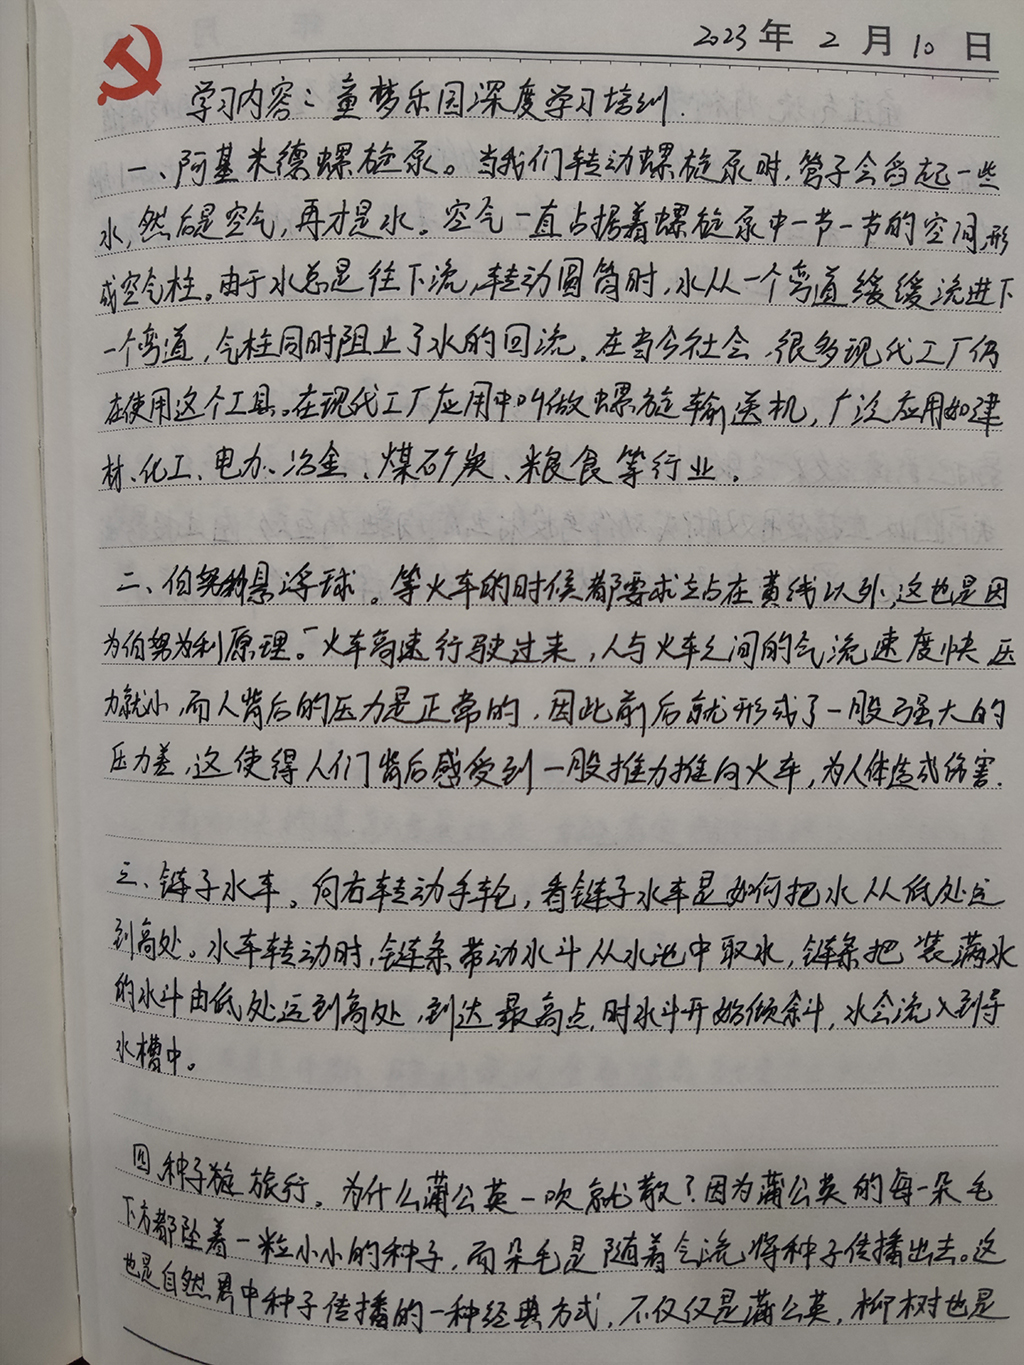 2023年2月10日
学习内容：童梦乐园深度学习培训.
一、阿基米德螺旋泵。当我们转动螺旋泵时，管子会舀起一些
水，然后是空气，再才是水。空气一直占据着螺旋泵中一节一节的空间，形
成空气柱。由于水总是往下流，转动圆筒时，水从一个弯道缓缓流进下
一个弯道，气柱同时阻止了水的回流。在当今社会，很多现代工厂仍
在使用这个工具。在现代工厂应用中叫做螺旋输送机，广泛应用如建
材、化工、电力、冶金、煤矿炭、粮食等行业。
二、伯努利悬浮球。等火车的时候都要求站在黄线以外，这也是因
为伯努为利原理。火车高速行驶过来，人与火车之间的气流速度快压
力就小，而人背后的压力是正常的，因此前后就形成了一股强大的
压力差，这使得人们背后感受到一股推力推向火车，为人体造成伤害.
三、链子水车。向右转动手轮，看链子水车是如何把水从低处运
到高处。水车转动时，链条带动水斗从水池中取水，链条把装满水
的水斗由低处运到高处，到达最高点，时水斗开始倾斜，水会流入到导
水槽中。
四、种子旋旅行。为什么蒲公英一吹就散？因为蒲公英的每一朵毛
下方都坠着一粒小小的种子，而朵毛是随着气流将种子传播出去。这
也是自然界中种子传播的一种经典方式，不仅仅是蒲公英，柳树也是